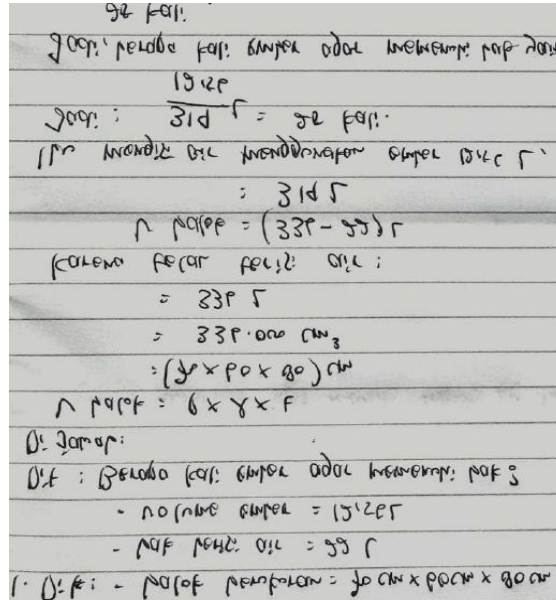 1. Dik: - balok berukuran = 70 cm x 60 cm x 80 cm
- bak berisi air = 22 L
- volume ember = 15,70 L
Dit : Berapa kali ember agar memenuhi bak?
Di jawab:
V balok = p x l x t
= (70 x 60 x 80) cm
= 336.000 cm³
= 336 L
Karena telah terisi air :
V balok = (336 - 22) L
= 314 L
Utk mengisi air menggunakan ember 15,70 L.
Jadi : 314 L / 15,70 = 20 kali.
Jadi, berapa kali ember agar memenuhi bak yaitu
20 kali